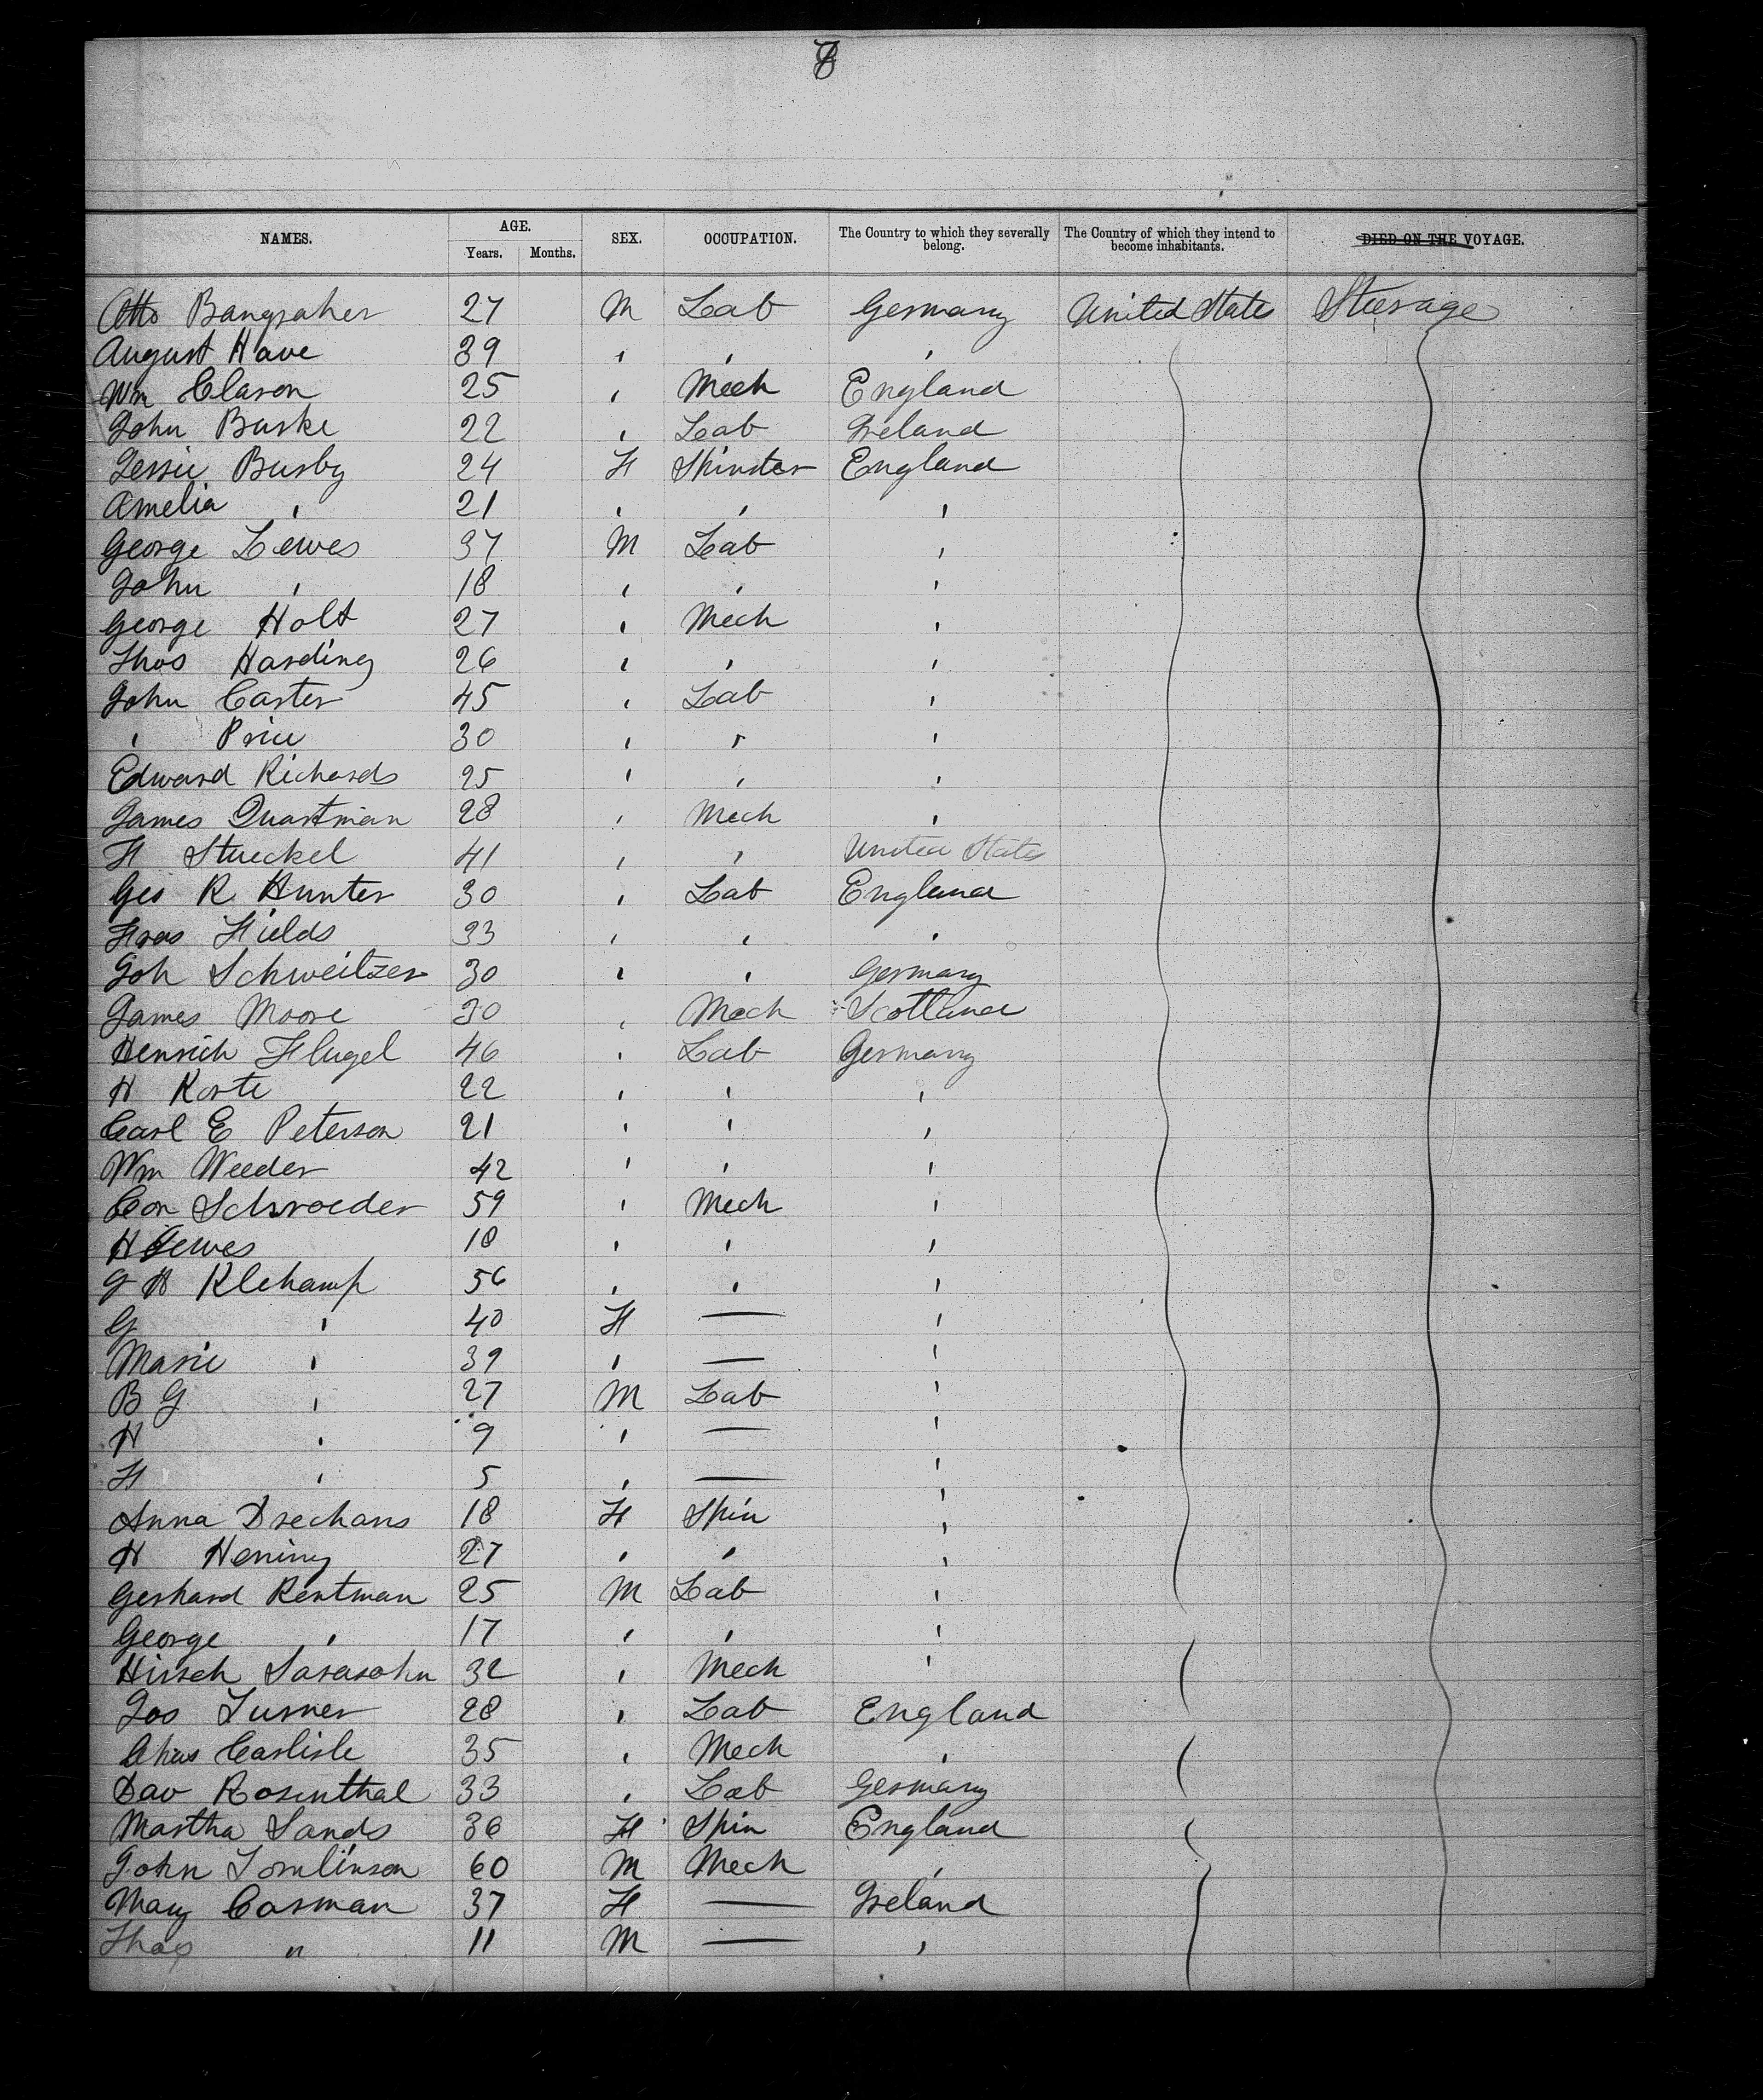 8
NAMES. AGE. SEX. OCCUPATION. The Country to which they severally belong. The Country of which they intend to become inhabitants. DIED ON THE VOYAGE.
Years. Months.
Otto Bangraher 27 M Lab Germany United States Steerage
August Have 39 " " "
Wm Clason 25 " Mech England
John Burke 22 " Lab Ireland
Jessie Busby 24 F Spinster England
Amelia " 21 " " "
George Lewes 37 M Lab "
John " 18 " " "
George Holt 27 " Mech "
Thos Harding 26 " " "
John Carter 45 " Lab "
" Price 30 " " "
Edward Richards 25 " " "
James Quartman 28 " Mech "
F Stueckel 41 " " United States
Geo R Hunter 30 " Lab England
Fras Fields 33 " " "
Joh Schweitzer 30 " " Germany
James Moore 30 " Mech Scotland
Henrich Flugel 46 " Lab Germany
H Korte 22 " " "
Carl E Peterson 21 " " "
Wm Weeder 42 " " "
Con Schroeder 59 " Mech "
H Tewes 18 " " "
G H Klekamp 56 " " "
G " 40 F — "
Marie " 39 " — "
B G " 27 M Lab "
H " 9 " — "
F " 5 " — "
Anna Drechans 18 F Spin "
H Hening 27 " " "
Gerhard Rentman 25 M Lab "
George " 17 " " "
Hirsch Sarasohn 32 " Mech "
Jos Turner 28 " Lab England
Chas Carlisle 35 " Mech "
Dav Rosenthal 33 " Lab Germany
Martha Sands 36 F Spin England
John Tomlinson 60 M Mech "
Mary Casman 37 F — Ireland
Thos " 11 M — "